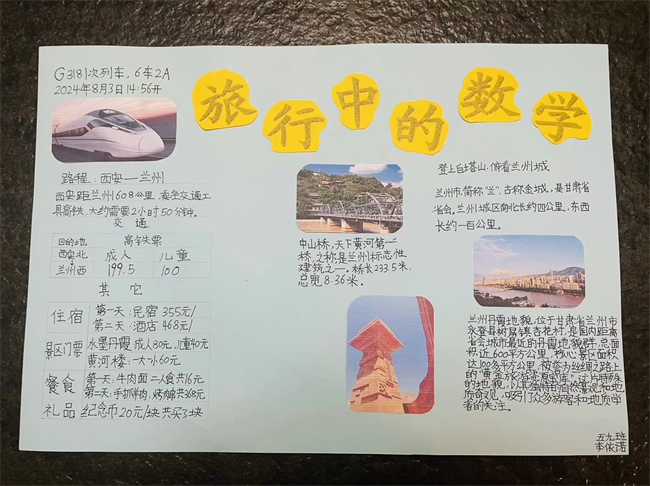 旅行中的数学
G3181次列车，6车2A
2024年8月3日14:56开
路程：西安—兰州
西安距兰州608公里，乘坐交通工
具高铁，大约需要2小时50分钟。
交通
目的地 高铁票
西安北 成人 儿童
兰州西 199.5 100
其它
住宿 第一天：民宿355元/
第二天：酒店468元/
景区门票 水墨丹霞 成人80元，儿童40元
黄河楼：一大一小60元
餐食 第一天：牛肉面 二人食共16元
第二天：手抓羊肉，烤 共368元
礼品 纪念币20元/块共买3块
中山桥，天下黄河第一
桥，之称是兰州标志性
建筑之一。桥长233.5米，
总宽8.36米。
登上白塔山，俯看兰州城。
兰州市，简称“兰”，古称金城，是甘肃省
省会。兰州城区南北长约四公里，东西
长约一百公里。
兰州丹霞地貌，位于甘肃省兰州市
永登县树屏镇杏花村，是国内距离
省会城市最近的丹霞地貌群，总面
积近600平方公里，核心景区面积
达100多平方公里，被誉为丝绸之路上
的“黄金 ”。这片特殊
的地貌，以其独特的自然景观和地
质奇观，吸引了众多游客和地质学
者的关注。
五九班
李依诺